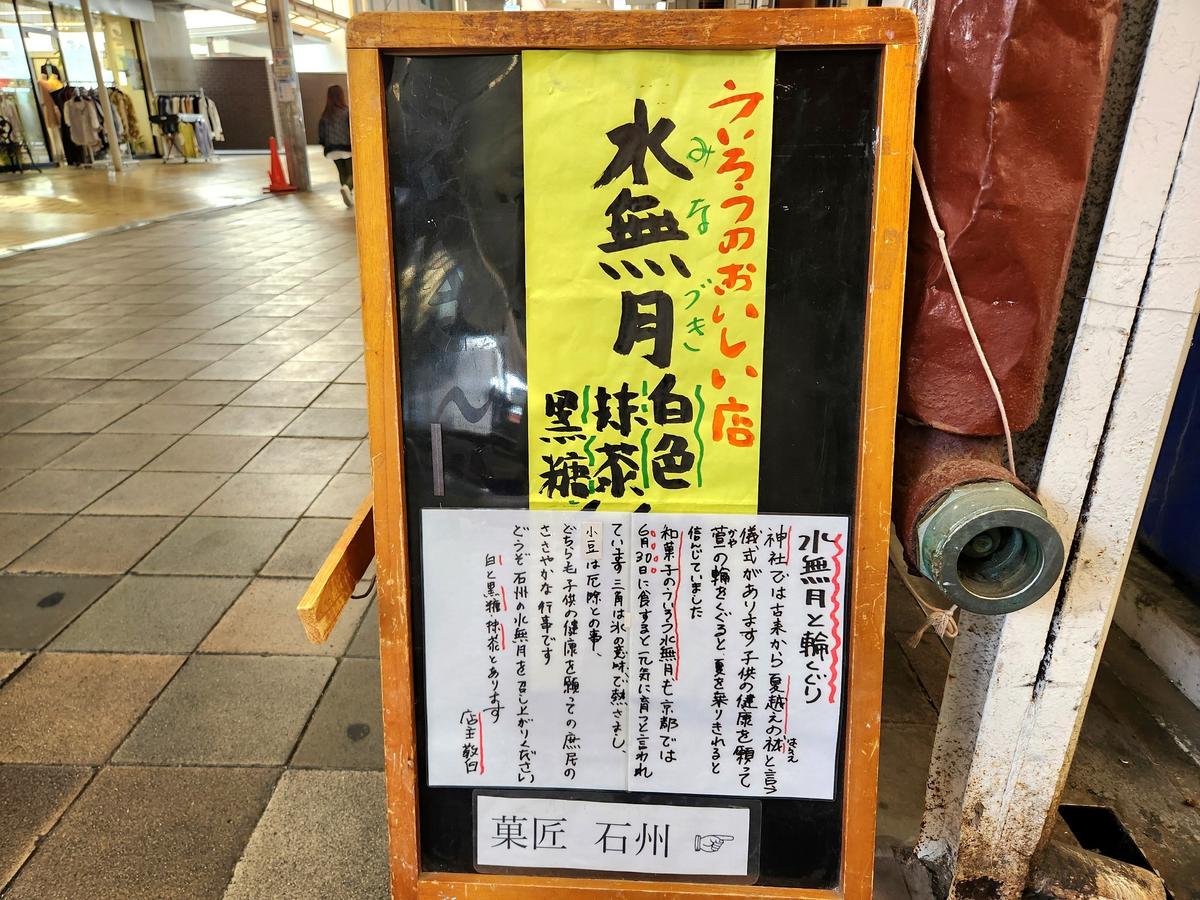 ういろうのおいしい店
水無月
みなづき
白色
抹茶
黒糖
水無月と輪くぐり
神社では古来から夏越えの祓と言う
はらえ
儀式があります子供の健康を願って
萱の輪をくぐると夏を乗りきれると
かや
信じていました
和菓子のういろう水無月も京都では
6月30日に食すると元気に育つと言われ
ています三角は氷の意味で熱さまし、
小豆は厄除との事、
どちらも子供の健康を願っての庶民の
ささやかな行事です
どうぞ石州の水無月を召し上がりください
白と黒糖抹茶とあります
店主敬白
菓匠 石州